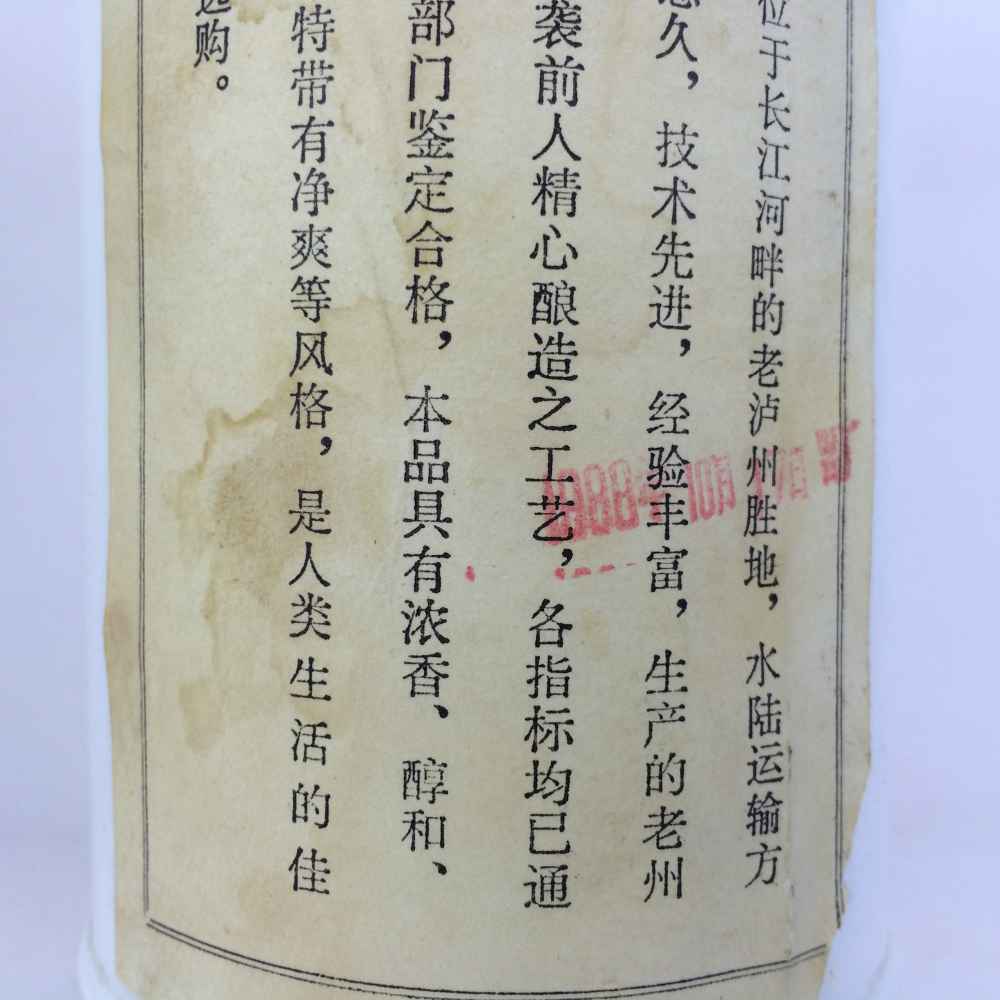 位于长江河畔的老泸州胜地，水陆运输方
悠久，技术先进，经验丰富，生产的老州
袭前人精心酿造之工艺，各指标均已通
部门鉴定合格，本品具有浓香、醇和、
特带有净爽等风格，是人类生活的佳
选购。